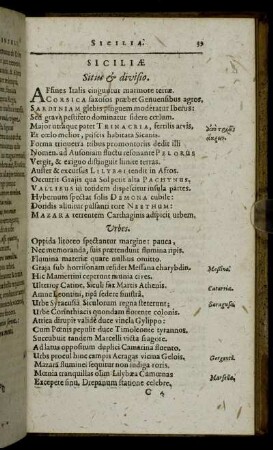 SICILIA. 39
SICILIÆ
Situs & divisio.
AFfines Italis cinguntur marmore terræ.
CORSICA saxosos præbet Genuensibus agros,
SARDINIAM glebis pinguem moderatur Iberus:
Sed gravi pestifero dominatur sidere cœlum.
Major utraque patet TRINACRIA, fertilis arvis,
Et cœlo melior, priscis habitata Sicanis.
Forma triquetra tribus promontoriis dedit illi
Nomen. ad Ausonium fluctu resonante PELORUS
Vergit, & exiguo distinguit limite terras.
Auster & excursus LILYBÆI tendit in Afros.
Occurrit Grajis qua Sol petit alta PACHYNUS,
VALLIBUS in totidem dispescitur insula partes.
Hybernum spectat solis DEMONA cubile:
Doridis alluitur pulsanti rore NEETHUM:
MAZARA torrentem Carthaginis adspicit urbem.
Urbes.
Oppida litoreo spectantur margine: pauca,
Nec memoranda, suis prætendunt flumina ripis.
Flumina materiæ quare nullius omitto.
Graja sub horrisonam residet Messana charybdin. Messina.
Hic Mamertini ceperunt mœnia cives.
Ulterior Catine, Siculi fax Martis Athenis. Catania.
Amne Leontini, ripâ sedere sinistrâ.
Urbs Syracusii Siculorum regna tueretur; Saragusa.
Urbs Corinthiacis quondam florente colonis.
Attica dirupit validé duce vincla Gylippo:
Cum Pœnis pepulit duce Timoleonte tyrannos.
Succubuit tandem Marcelli victa sagittæ.
Adlatus oppositum duplici Camarina fluento.
Urbs procul hinc campis Acragas vicina Gelois. Gergenti.
Mazari flumineis sequitur non indiga roris.
Mœnia tranquillas olim Lilybæa Camœnas Marsella.
Excepere sinu, Drepanum statione celebre,
C 4